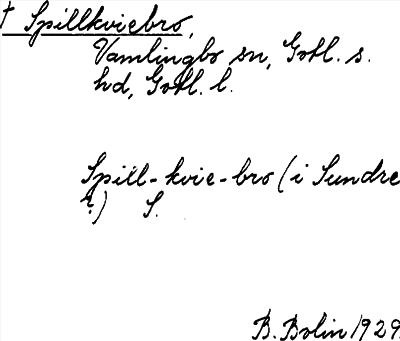 † Spillkviebro,
Vamlingbo sn, Gotl. s.
hd, Gotl. l.
Spill-kvie-bro (i Sundre
?) S.
B. Bolin 1929